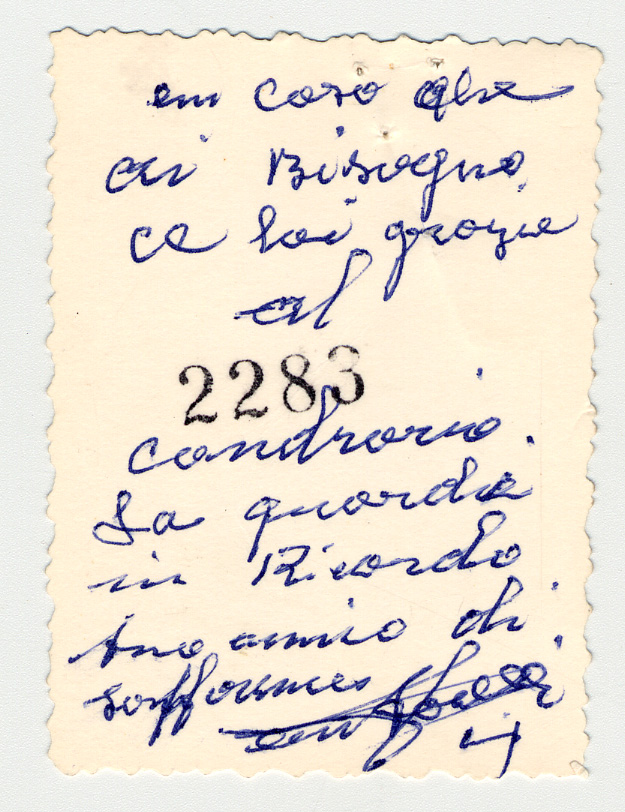 em caso che
ai Bisogno
ce lai grazie
al
2283
candrario.
La guarda
in Ricordo
tuo amico di